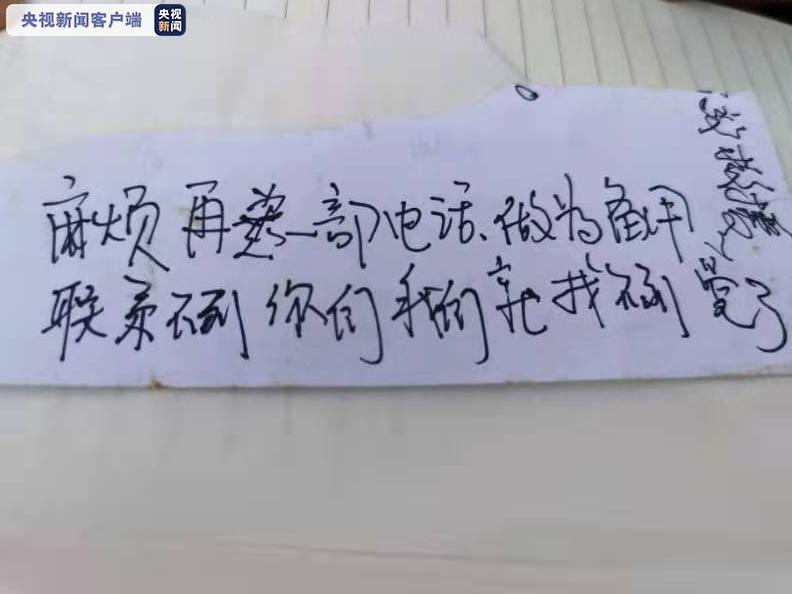 央视新闻客户端
央视
新闻
麻烦再一部电话、做为备用
联系不到你们我们就找不到了